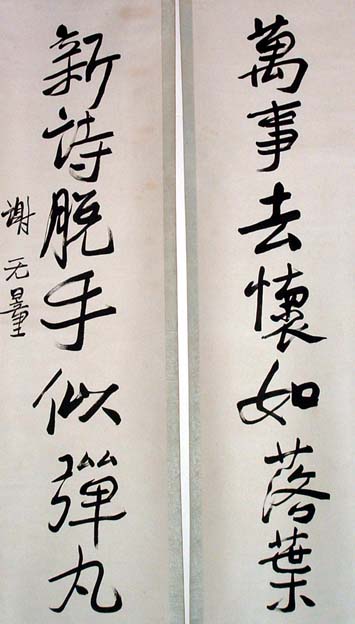 萬事去懷如落葉
新詩脫手似彈丸
謝无量